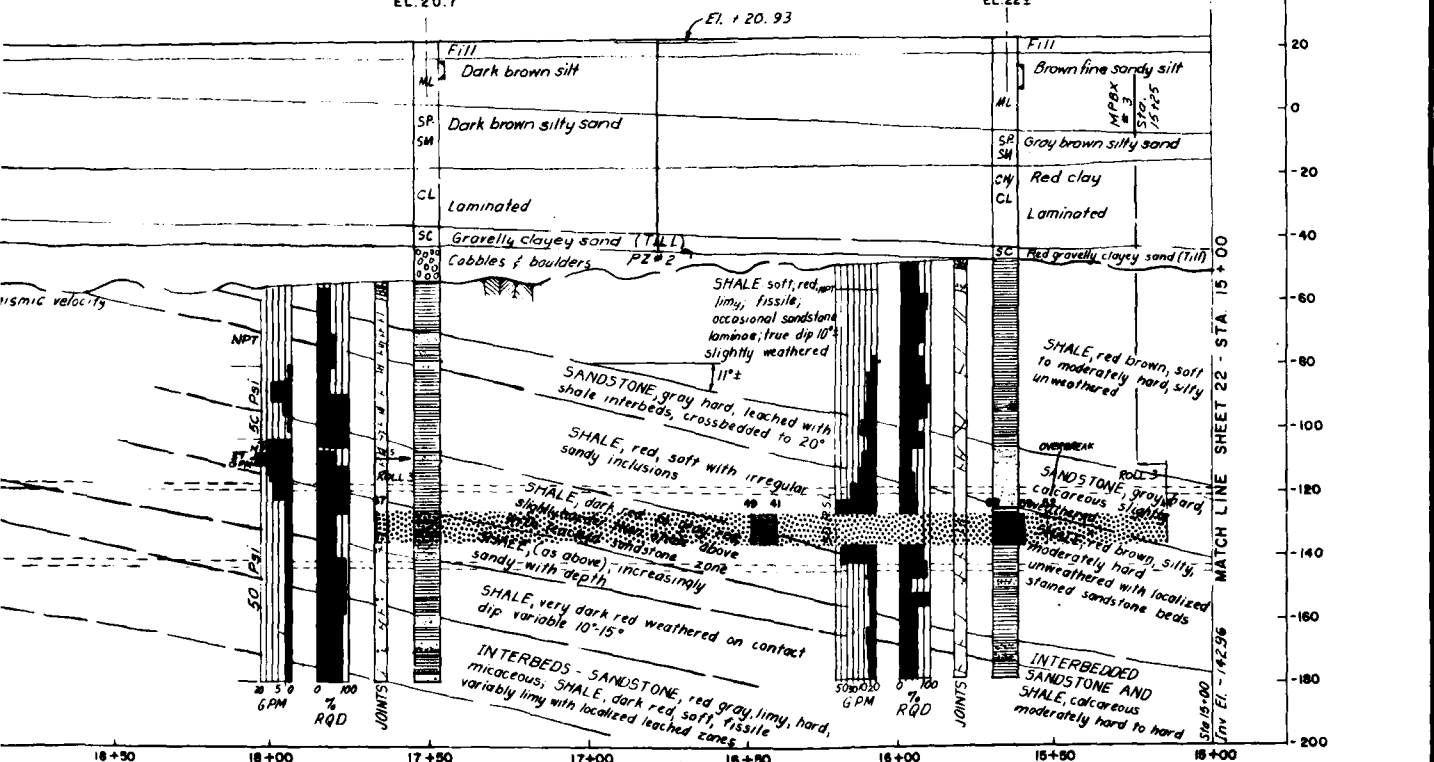 EL.20.7
EL.22±
El. + 20.93
Fill
Dark brown silt
ML
SP
SM
Dark brown silty sand
CL
Laminated
SC
Gravelly clayey sand (TILL)
Cobbles & boulders
PZ#2
Fill
Brown fine sandy silt
ML
MPBX
# 3
Sta.
15+25
SP
SM
Gray brown silty sand
CH/
CL
Red clay
Laminated
SC
Red gravelly clayey sand (Till)
20
0
-20
-40
-60
-80
-100
-120
-140
-160
-180
-200
MATCH LINE SHEET 22 - STA. 15+00
Sta 15+00
Inv El. -142.96
velocity
NPT
50 Psi
50 Psi
SHALE soft, red,
limy; fissile;
occasional sandstone
laminae; true dip 10°±
slightly weathered
NPT
11°±
SANDSTONE, gray hard, leached with
shale interbeds, crossbedded to 20°
SHALE, red, soft with irregular
sandy inclusions
SHALE, dark red to gray, red
slightly harder than above
sandstone zone
SHALE, (as above), increasingly
sandy with depth
SHALE, very dark red weathered on contact
dip variable 10°-15°
INTERBEDS - SANDSTONE, red gray, limy, hard,
micaceous; SHALE, dark red, soft, fissile
variably limy with localized leached zones
49 41
SHALE, red brown, soft
to moderately hard, silty
unweathered
OVERBREAK
ROLL 3
SANDSTONE, gray, hard,
calcareous slightly
weathered
SHALE, red brown, silty,
moderately hard
unweathered with localized
stained sandstone beds
INTERBEDDED
SANDSTONE AND
SHALE, calcareous
moderately hard to hard
20 5 0
GPM
0 100
%
RQD
JOINTS
GPM
0 100
%
RQD
JOINTS
18+50
18+00
17+50
17+00
16+50
16+00
15+50
15+00